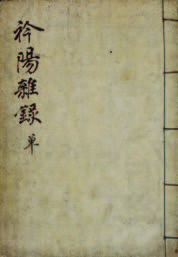 衿陽雜録 單